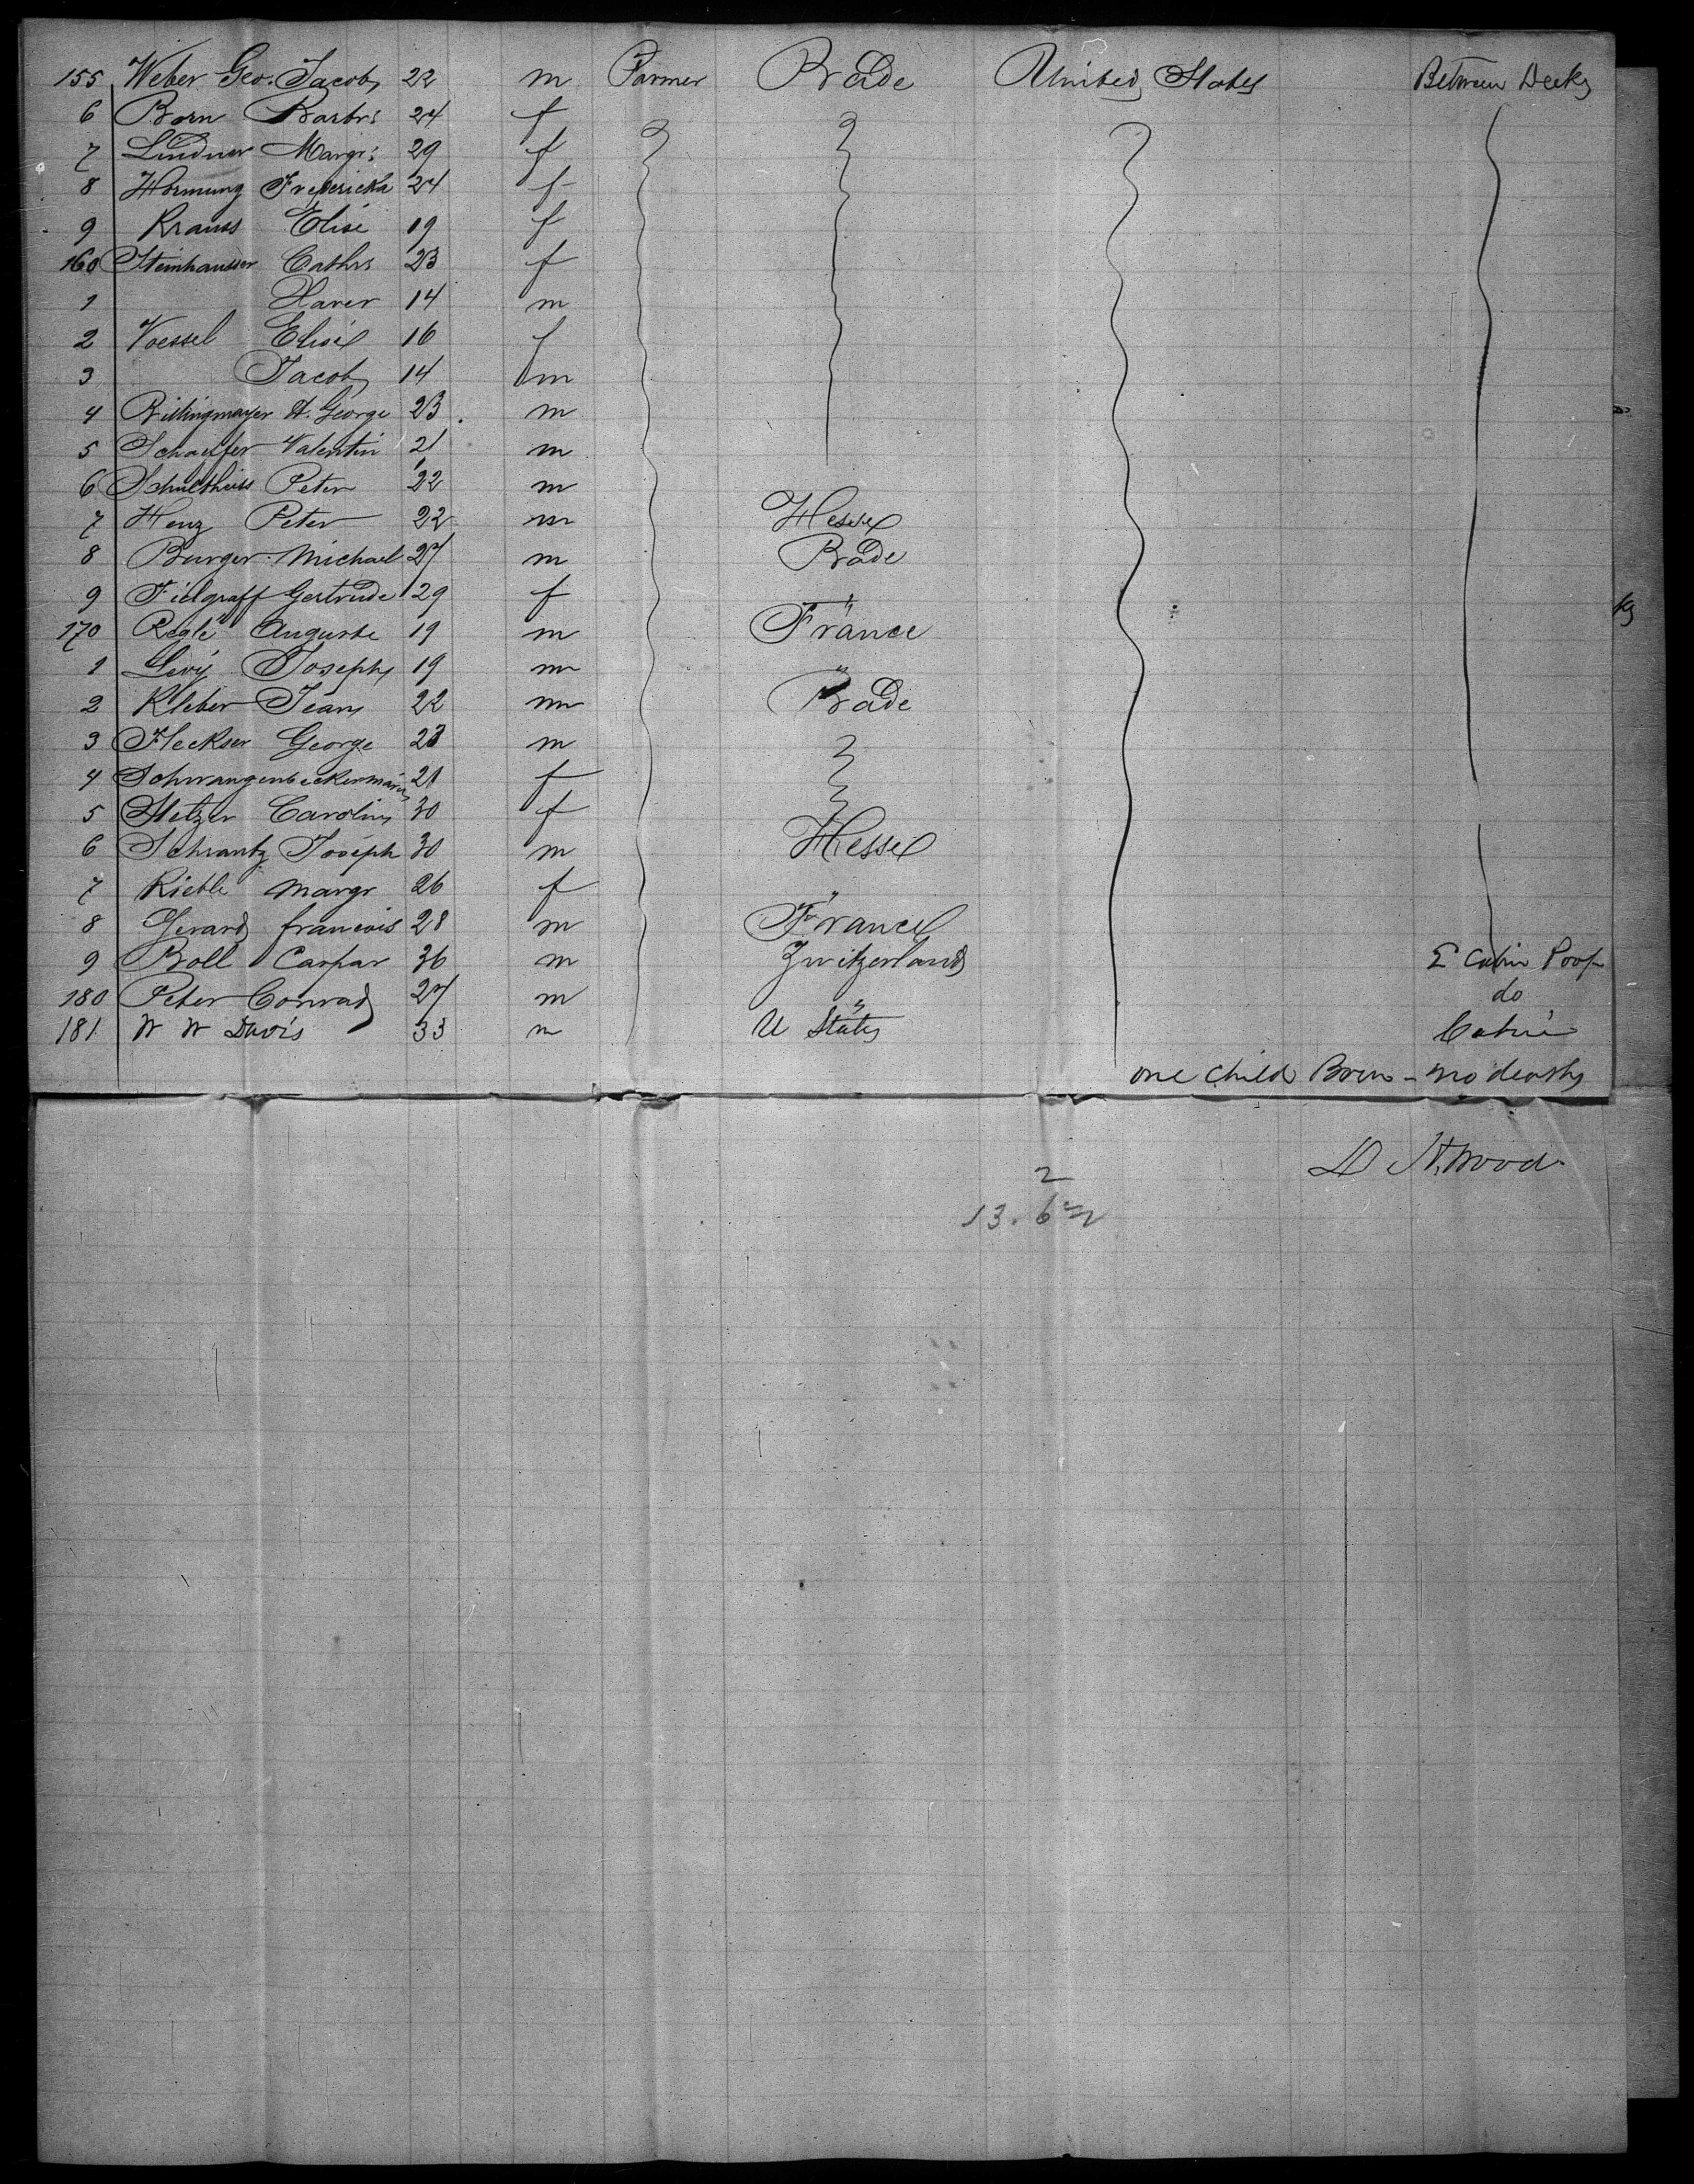 155 Weber Geo. Jacob 22 m Farmer Bade United States Between Decks
6 Born Barbr: 24 f
7 Lindner Margr: 29 f
8 Hormung Fredericka 24 f
9 Krauss Elise 19 f
160 Steinhausser Cathr: 23 f
1 Xaver 14 m
2 Voessel Elise 16 f
3 Jacob 14 m
4 Billingmayer A. George 23 m
5 Schaeffer Valentin 21 m
6 Schultheiss Peter 22 m
7 Henz Peter 22 m Hesse
8 Burger Michael 27 m Bade
9 Fielgraff Gertrude 29 f "
170 Regle Auguste 19 m France
1 Levy Joseph 19 m "
2 Kleber Jean 22 m Bade
3 Fleckser George 23 m
4 21 f
5 Metzer Carolin 30 f
6 Schrantz Joseph 30 m Hesse
7 Rieble Margr 26 f "
8 Gerard francois 28 m France
9 Boll Caspar 36 m Zwitzerland 2 Cabin Poop
180 Peter Conrad 27 m " do
181 W W Davis 33 m U States Cabin
one child Born - no deaths
D Atwood
2
13.6